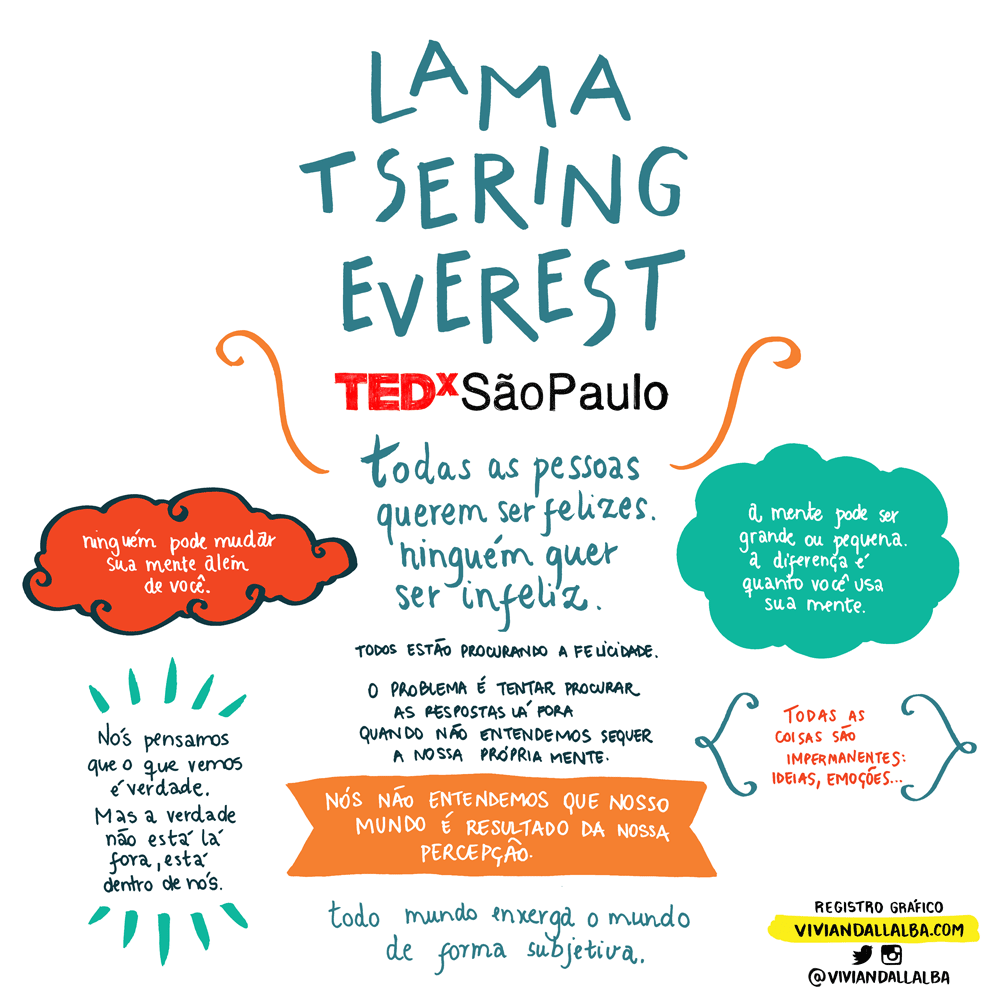 LAMA
TSERING
EVEREST
TEDxSãoPaulo
todas as pessoas
querem ser felizes.
ninguém quer
ser infeliz.
ninguém pode mudar
sua mente além
de você.
a mente pode ser
grande ou pequena.
a diferença é
quanto você usa
sua mente.
TODOS ESTÃO PROCURANDO A FELICIDADE.
O PROBLEMA É TENTAR PROCURAR
AS RESPOSTAS LÁ FORA
QUANDO NÃO ENTENDEMOS SEQUER
A NOSSA PRÓPRIA MENTE.
Nós pensamos
que o que vemos
é verdade.
Mas a verdade
não está lá
fora, está
dentro de nós.
TODAS AS
COISAS SÃO
IMPERMANENTES:
IDEIAS, EMOÇÕES...
NÓS NÃO ENTENDEMOS QUE NOSSO
MUNDO É RESULTADO DA NOSSA
PERCEPÇÃO.
todo mundo enxerga o mundo
de forma subjetiva.
REGISTRO GRÁFICO
VIVIANDALLALBA.COM
@VIVIANDALLALBA